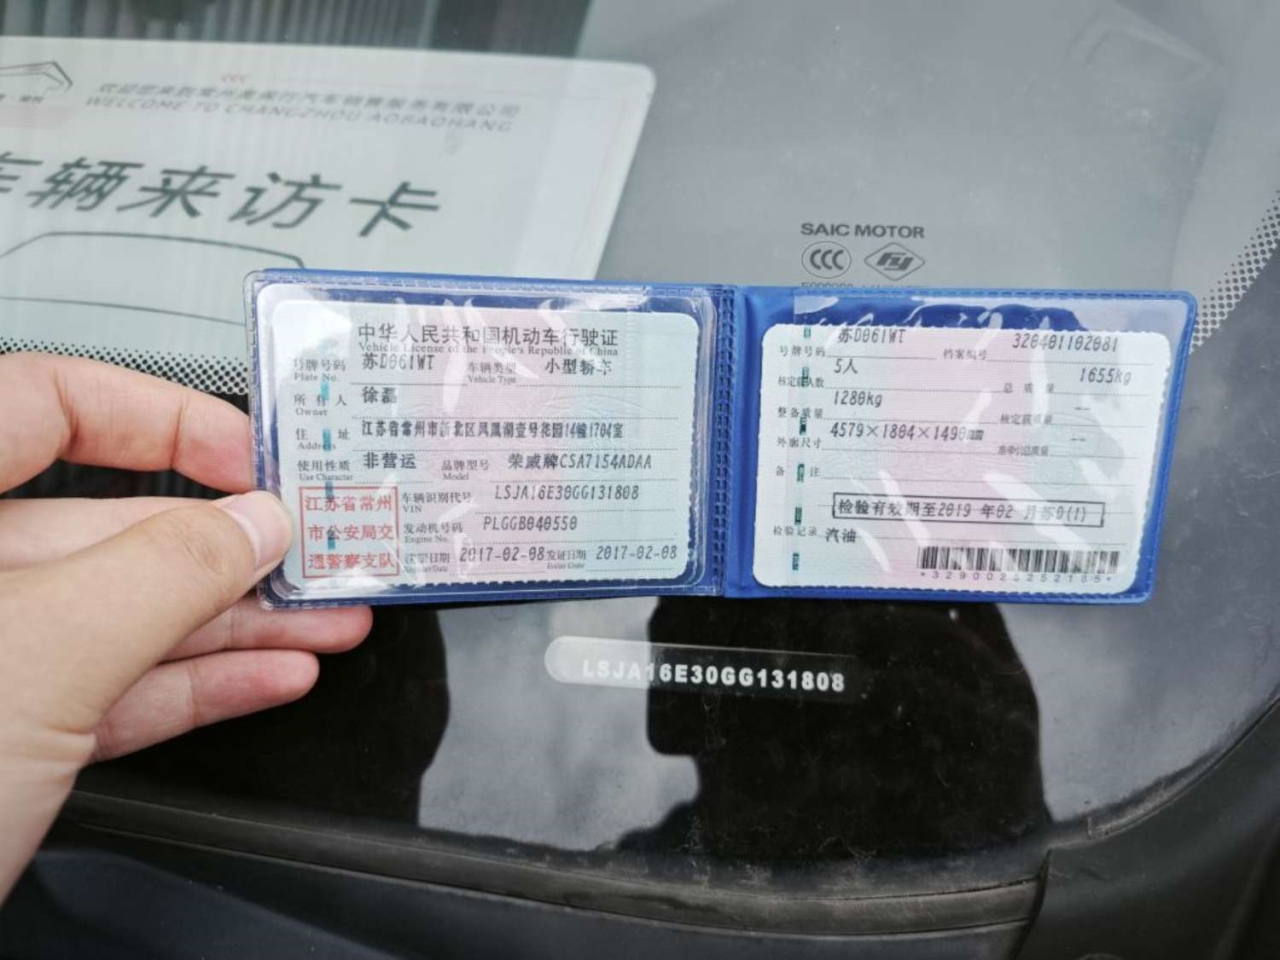 欢迎您来到常州奥保行汽车销售服务有限公司
WELCOME TO CHANGZHOU AOBAOHANG
车辆来访卡
SAIC MOTOR
CCC
中华人民共和国机动车行驶证
Vehicle License of the People's Republic of China
号牌号码 苏D061WT 车辆类型 小型轿车
Plate No. Vehicle Type
所有人 徐磊
Owner
住址 江苏省常州市新北区凤凰湖壹号花园14幢1704室
Address
使用性质 非营运 品牌型号 荣威牌CSA7154ADAA
Use Character Model
江苏省常州
市公安局交
通警察支队
车辆识别代号 LSJA16E30GG131808
VIN
发动机号码 PLGGB040550
Engine No.
注册日期 2017-02-08 发证日期 2017-02-08
Register Date Issue Date
号牌号码 苏D061WT 档案编号 320401102081
核定载人数 5人 总质量 1655kg
整备质量 1280kg 核定载质量 --
外廓尺寸 4579×1804×1490mm 准牵引总质量 --
备注
检验有效期至2019年02月苏D(1)
检验记录 汽油
*3290025252185*
LSJA16E30GG131808